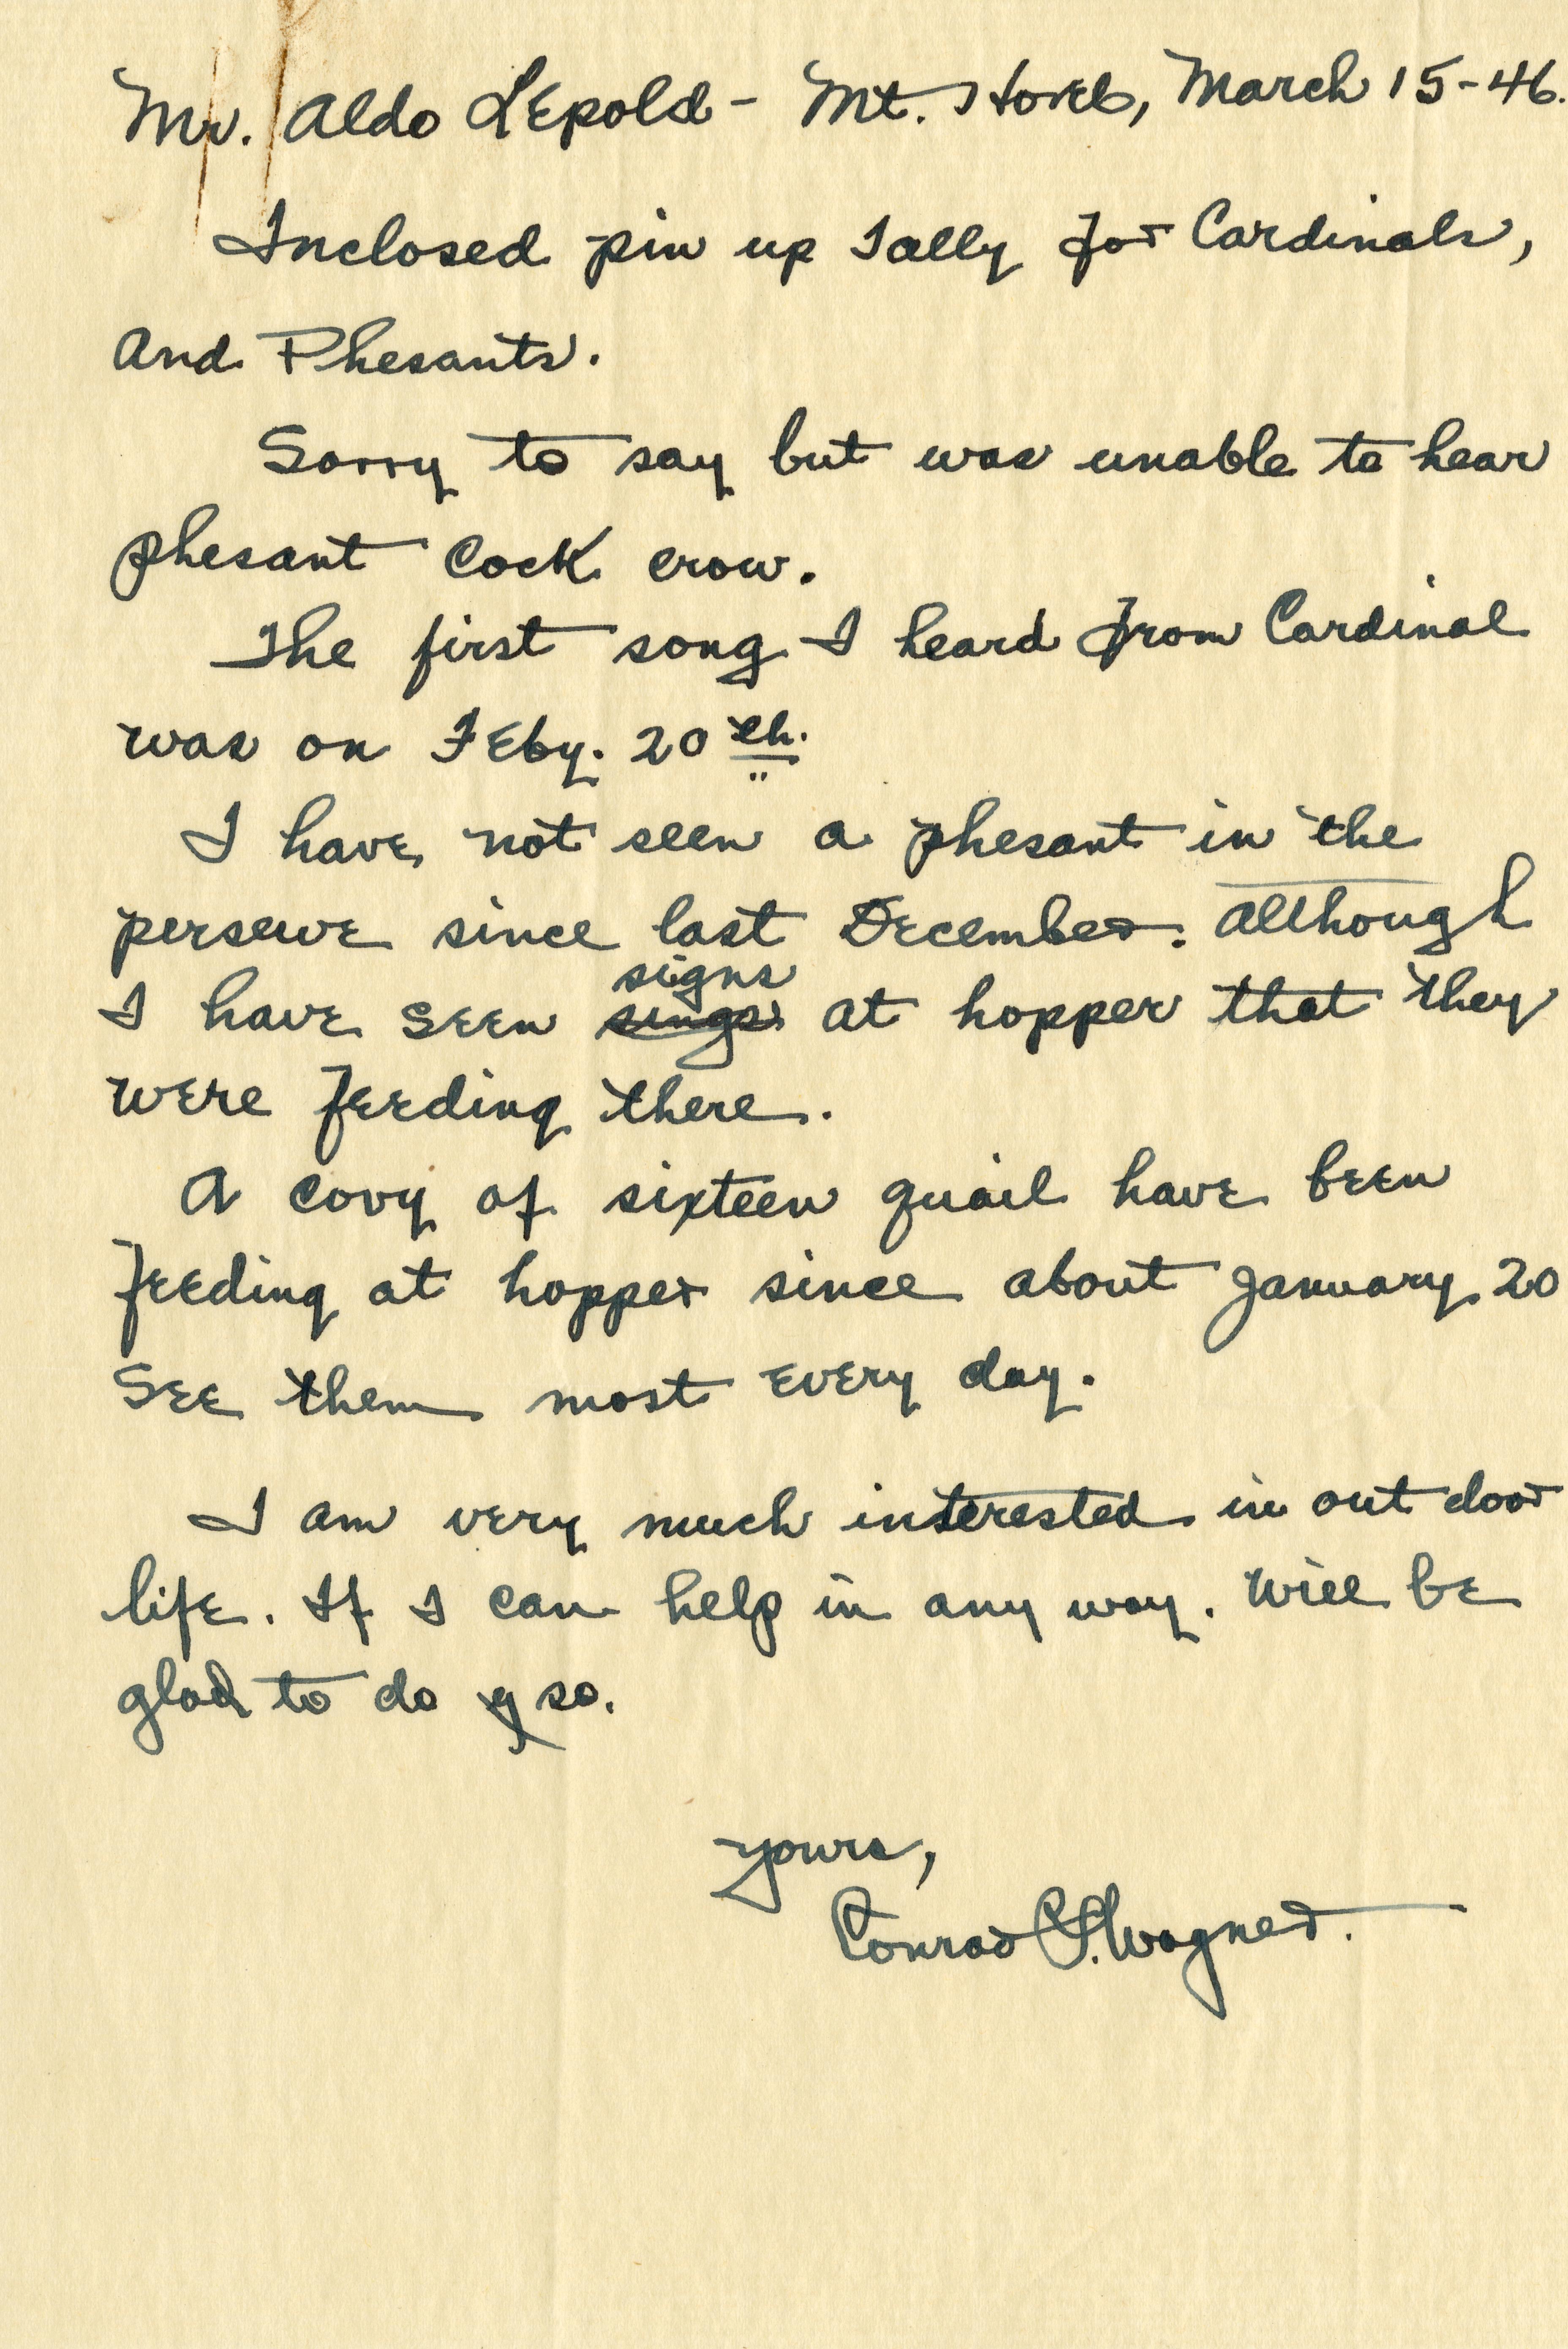 Mr. Aldo LEpold - Mt. Horeb, March 15-46.
Inclosed pin up Tally for Cardinals,
and Phesants.
Sorry to say but was unable to hear
phesant Cock crow.
The first song I heard from Cardinal
was on Feby. 20th.
I have not seen a phesant in the
perserve since last December. although
signs
I have seen sings at hopper that they
were feeding there.
A covy of sixteen quail have been
feeding at hopper since about January 20
See them most every day.
I am very much interested in out door
life. If I can help in any way. Will be
glad to do so.
yours,
Conrad Wagner.